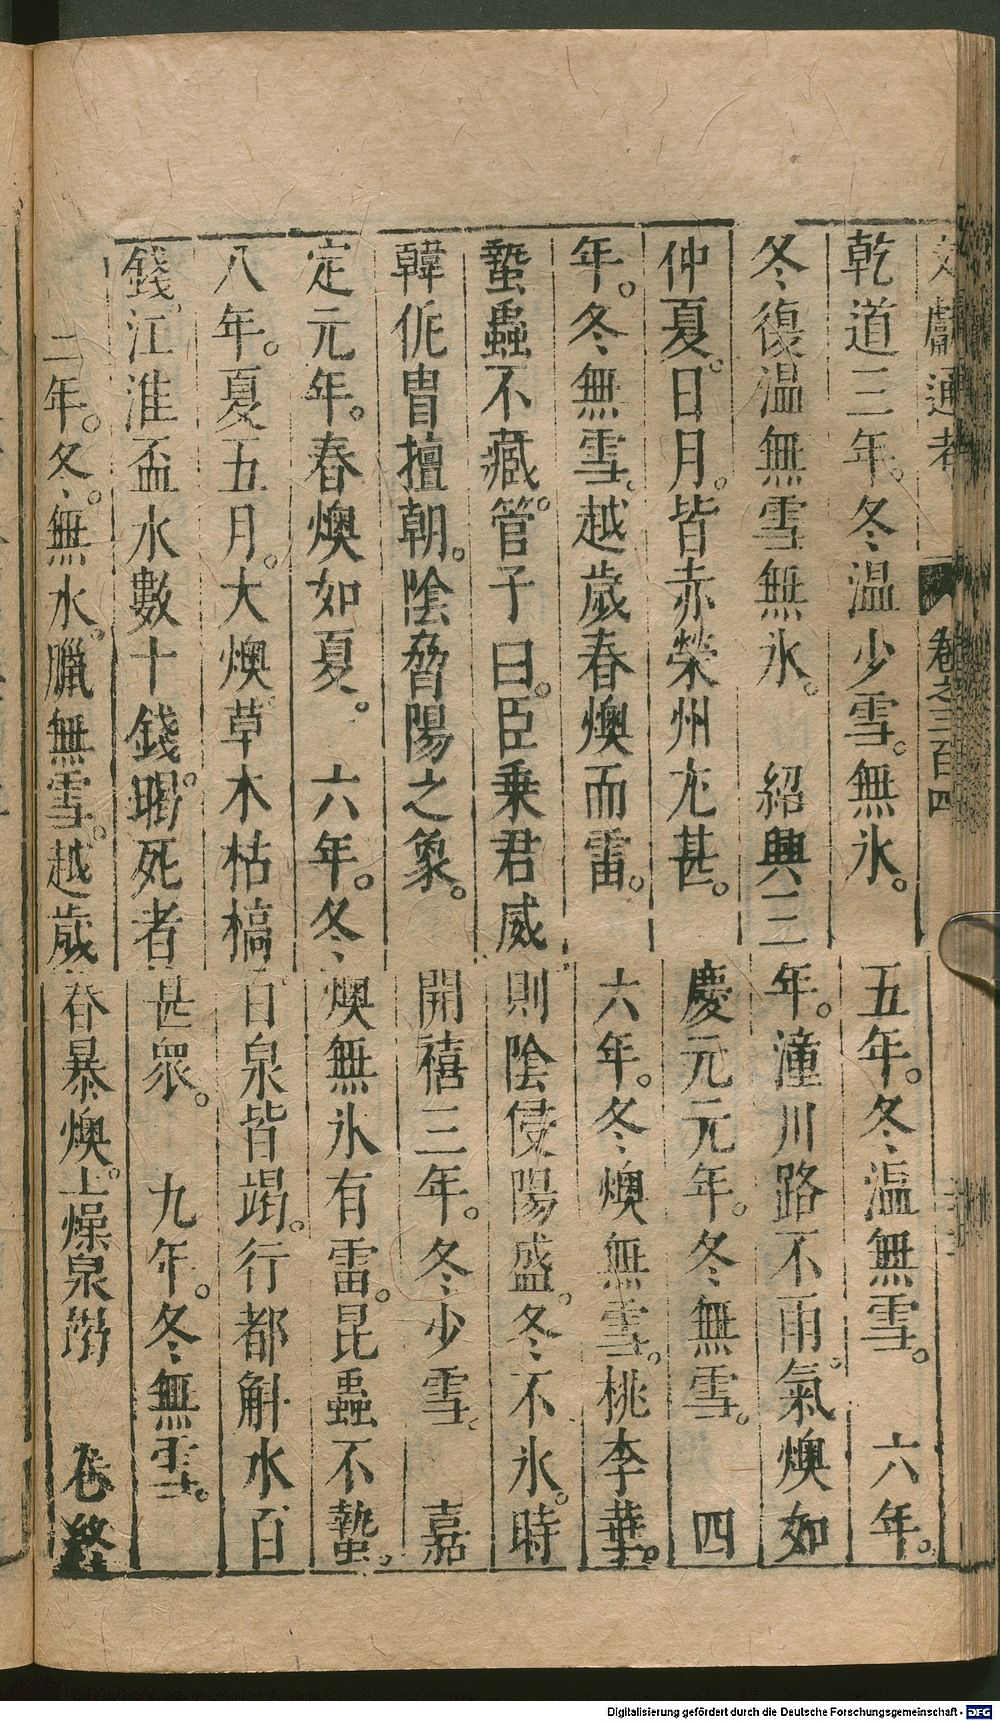 文獻通考 卷之三百四
乾道三年。冬溫少雪。無氷。 五年。冬溫無雪。 六年。
冬復溫無雪無氷。 紹興三年。潼川路不雨。氣燠如
仲夏。日月。皆赤榮州尤甚。 慶元元年。冬無雪。 四
年。冬無雪。越歲春燠而雷。 六年。冬燠無雪。桃李華。
蟄蟲不藏。管子曰。臣乗君威則陰侵陽盛。冬不氷。時
韓侂冑擅朝。陰脅陽之象。 開禧三年。冬少雪。 嘉
定元年。春燠如夏。 六年。冬燠無氷有雷。昆蟲不蟄。
八年。夏五月。大燠草木枯槁百泉皆竭。行都斛水百
錢。江淮盃水數十錢。暍死者甚衆。 九年。冬無雪。
二年。冬。無水。臘無雪。越歲春暴燠。土燥泉
Digitalisierung gefördert durch die Deutsche Forschungsgemeinschaft - DFG